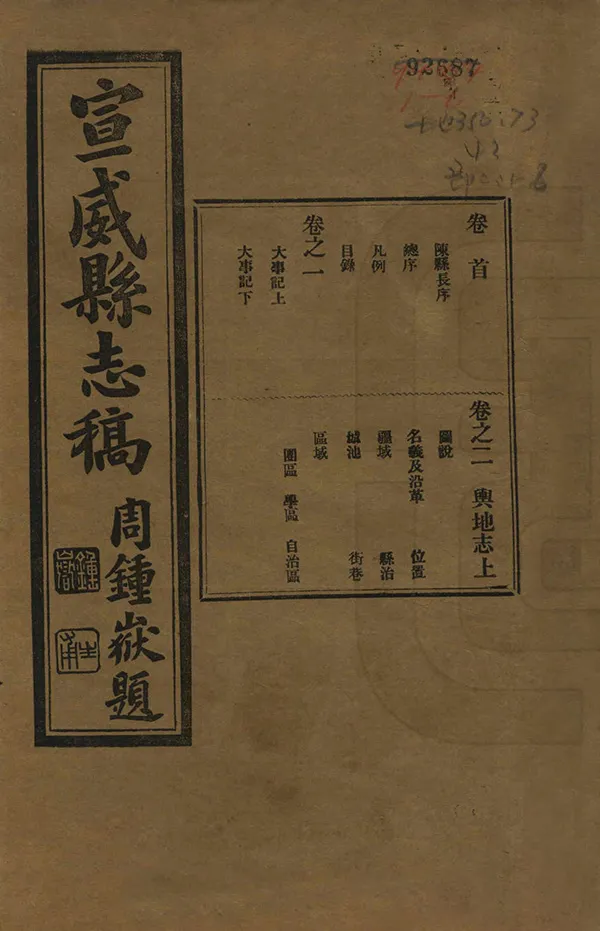 92687
宣威縣志稿
周鍾嶽題
鍾嶽
卷首
陳縣長序
總序
凡例
目錄
卷之一
大事記上
大事記下
卷之二 輿地志上
圖說
名義及沿革 位置
疆域 縣治
城池 街巷
區域
團區 學區 自治區